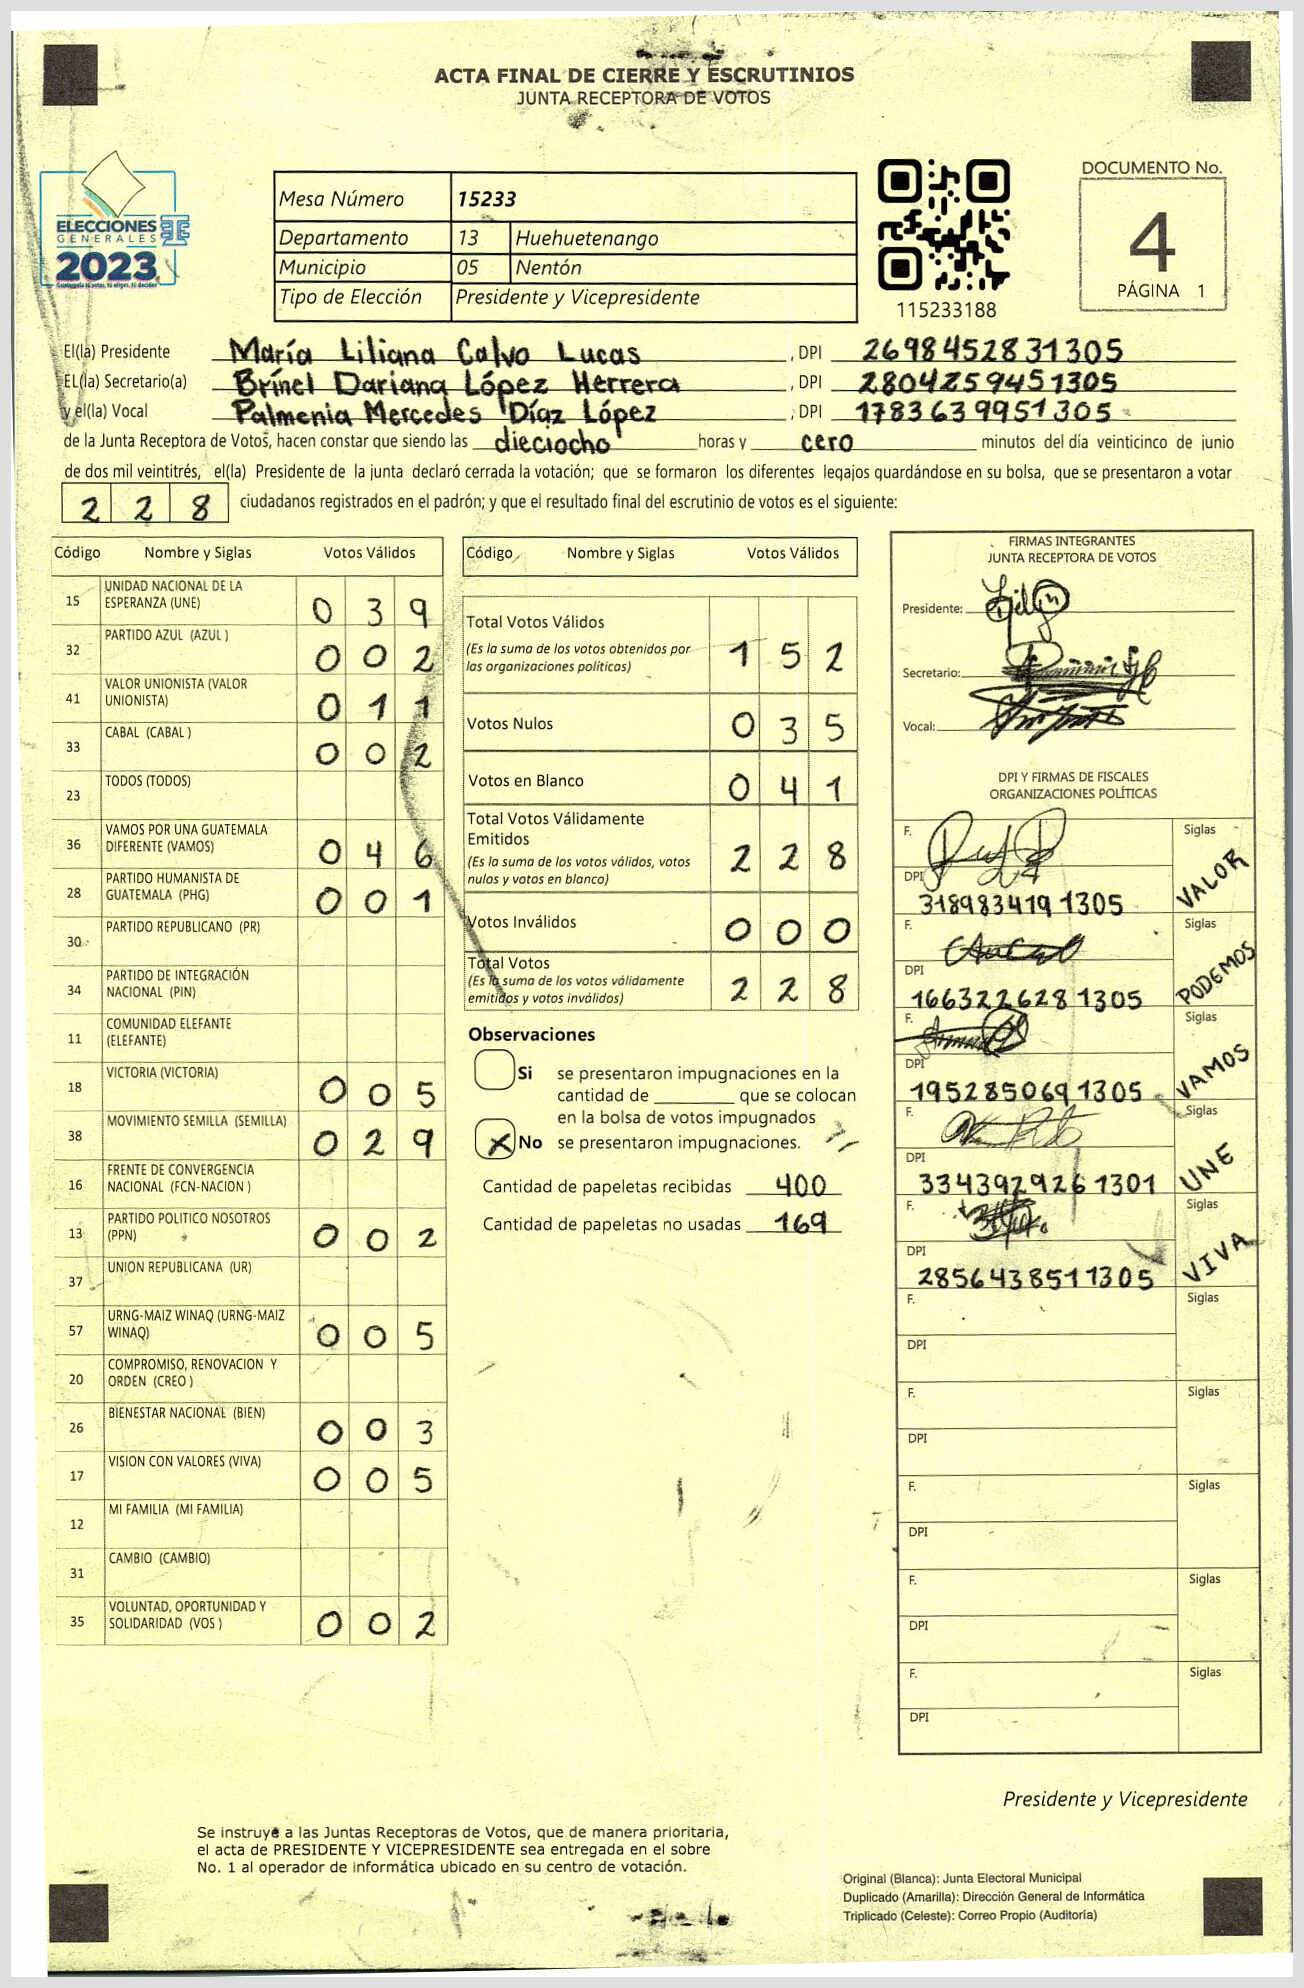 ACTA FINAL DE CIERRE Y ESCRUTINIOS
JUNTA RECEPTORA DE VOTOS
ELECCIONES
GENERALES
2023
Mesa Número 15233
Departamento 13 Huehuetenango
Municipio 05 Nentón
Tipo de Elección Presidente y Vicepresidente
115233188
DOCUMENTO No.
4
PÁGINA 1
El(la) Presidente María Liliana Calvo Lucas , DPI 2698452831305
EL(la) Secretario(a) Brinel Dariana López Herrera , DPI 2804259451305
y el(la) Vocal Palmenia Mercedes Díaz López , DPI 1783639951305
de la Junta Receptora de Votos, hacen constar que siendo las dieciocho horas y cero minutos del día veinticinco de junio
de dos mil veintitrés, el(la) Presidente de la junta declaró cerrada la votación; que se formaron los diferentes legajos guardándose en su bolsa, que se presentaron a votar
228 ciudadanos registrados en el padrón; y que el resultado final del escrutinio de votos es el siguiente:
Código Nombre y Siglas Votos Válidos
15 UNIDAD NACIONAL DE LA
ESPERANZA (UNE) 039
32 PARTIDO AZUL (AZUL ) 002
41 VALOR UNIONISTA (VALOR
UNIONISTA) 011
33 CABAL (CABAL ) 002
23 TODOS (TODOS)
36 VAMOS POR UNA GUATEMALA
DIFERENTE (VAMOS) 046
28 PARTIDO HUMANISTA DE
GUATEMALA (PHG) 001
30 PARTIDO REPUBLICANO (PR)
34 PARTIDO DE INTEGRACIÓN
NACIONAL (PIN)
11 COMUNIDAD ELEFANTE
(ELEFANTE)
18 VICTORIA (VICTORIA) 005
38 MOVIMIENTO SEMILLA (SEMILLA) 029
16 FRENTE DE CONVERGENCIA
NACIONAL (FCN-NACION )
13 PARTIDO POLITICO NOSOTROS
(PPN) 002
37 UNION REPUBLICANA (UR)
57 URNG-MAIZ WINAQ (URNG-MAIZ
WINAQ) 005
20 COMPROMISO, RENOVACION Y
ORDEN (CREO )
26 BIENESTAR NACIONAL (BIEN) 003
17 VISION CON VALORES (VIVA) 005
12 MI FAMILIA (MI FAMILIA)
31 CAMBIO (CAMBIO)
35 VOLUNTAD, OPORTUNIDAD Y
SOLIDARIDAD (VOS ) 002
Código Nombre y Siglas Votos Válidos
Total Votos Válidos
(Es la suma de los votos obtenidos por
las organizaciones políticas) 152
Votos Nulos 035
Votos en Blanco 041
Total Votos Válidamente
Emitidos
(Es la suma de los votos válidos, votos
nulos y votos en blanco) 228
Votos Inválidos 000
Total Votos
(Es la suma de los votos válidamente
emitidos y votos inválidos) 228
Observaciones
Si se presentaron impugnaciones en la
cantidad de ________ que se colocan
en la bolsa de votos impugnados
X No se presentaron impugnaciones.
Cantidad de papeletas recibidas 400
Cantidad de papeletas no usadas 169
FIRMAS INTEGRANTES
JUNTA RECEPTORA DE VOTOS
Presidente:
Secretario:
Vocal:
DPI Y FIRMAS DE FISCALES
ORGANIZACIONES POLÍTICAS
F. Siglas
DPI 3189834191305 VALOR
F. Siglas
DPI 1663226281305 PODEMOS
F. Siglas
DPI 1952850691305 VAMOS
F. Siglas
DPI 3343929261301 UNE
F. Siglas
DPI 2856438511305 VIVA
F. Siglas
DPI
F. Siglas
DPI
F. Siglas
DPI
F. Siglas
DPI
F. Siglas
DPI
Presidente y Vicepresidente
Se instruye a las Juntas Receptoras de Votos, que de manera prioritaria,
el acta de PRESIDENTE Y VICEPRESIDENTE sea entregada en el sobre
No. 1 al operador de informática ubicado en su centro de votación.
Original (Blanca): Junta Electoral Municipal
Duplicado (Amarilla): Dirección General de Informática
Triplicado (Celeste): Correo Propio (Auditoría)